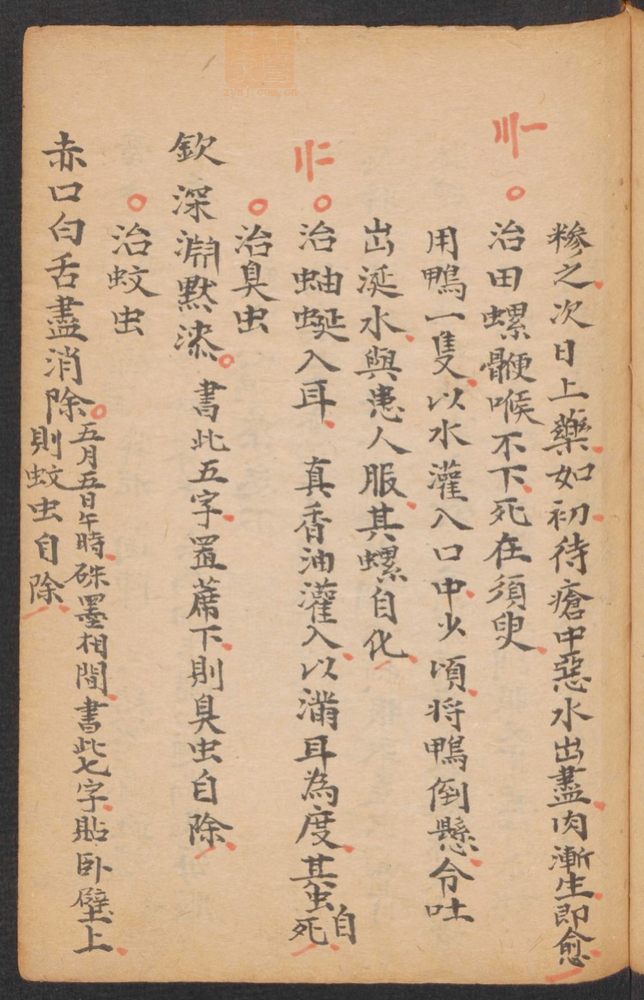 糝之次日上藥如初待瘡中惡水出盡肉漸生即愈
〣一
治田螺骾喉不下死在須臾
用鴨一隻以水灌入口中少頃將鴨倒懸令吐
出涎水與患人服其螺自化
〣二
治蚰蜒入耳 真香油灌入以滿耳為度其虫自死
治臭虫
欽深淵默漆 書此五字置蓆下則臭虫自除
治蚊虫
赤口白舌盡消除 五月五日午時硃墨相間書此七字貼臥壁上
則蚊虫自除